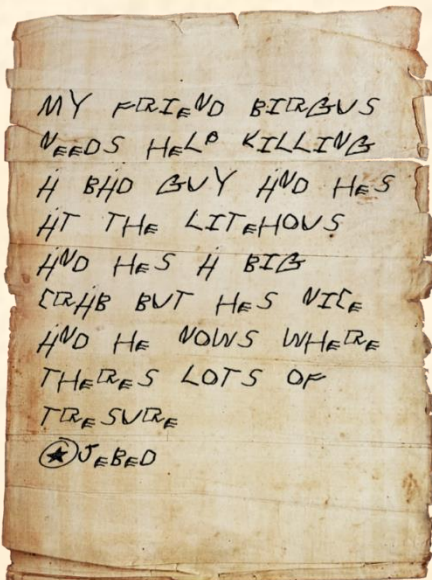 MY FRIEND BIRGUS
NEEDS HELP KILLING
A BAD GUY AND HES
AT THE LITEHOUS
AND HES A BIG
CRAB BUT HES NICE
AND HE NOWS WHERE
THERES LOTS OF
TRESURE
JEBED